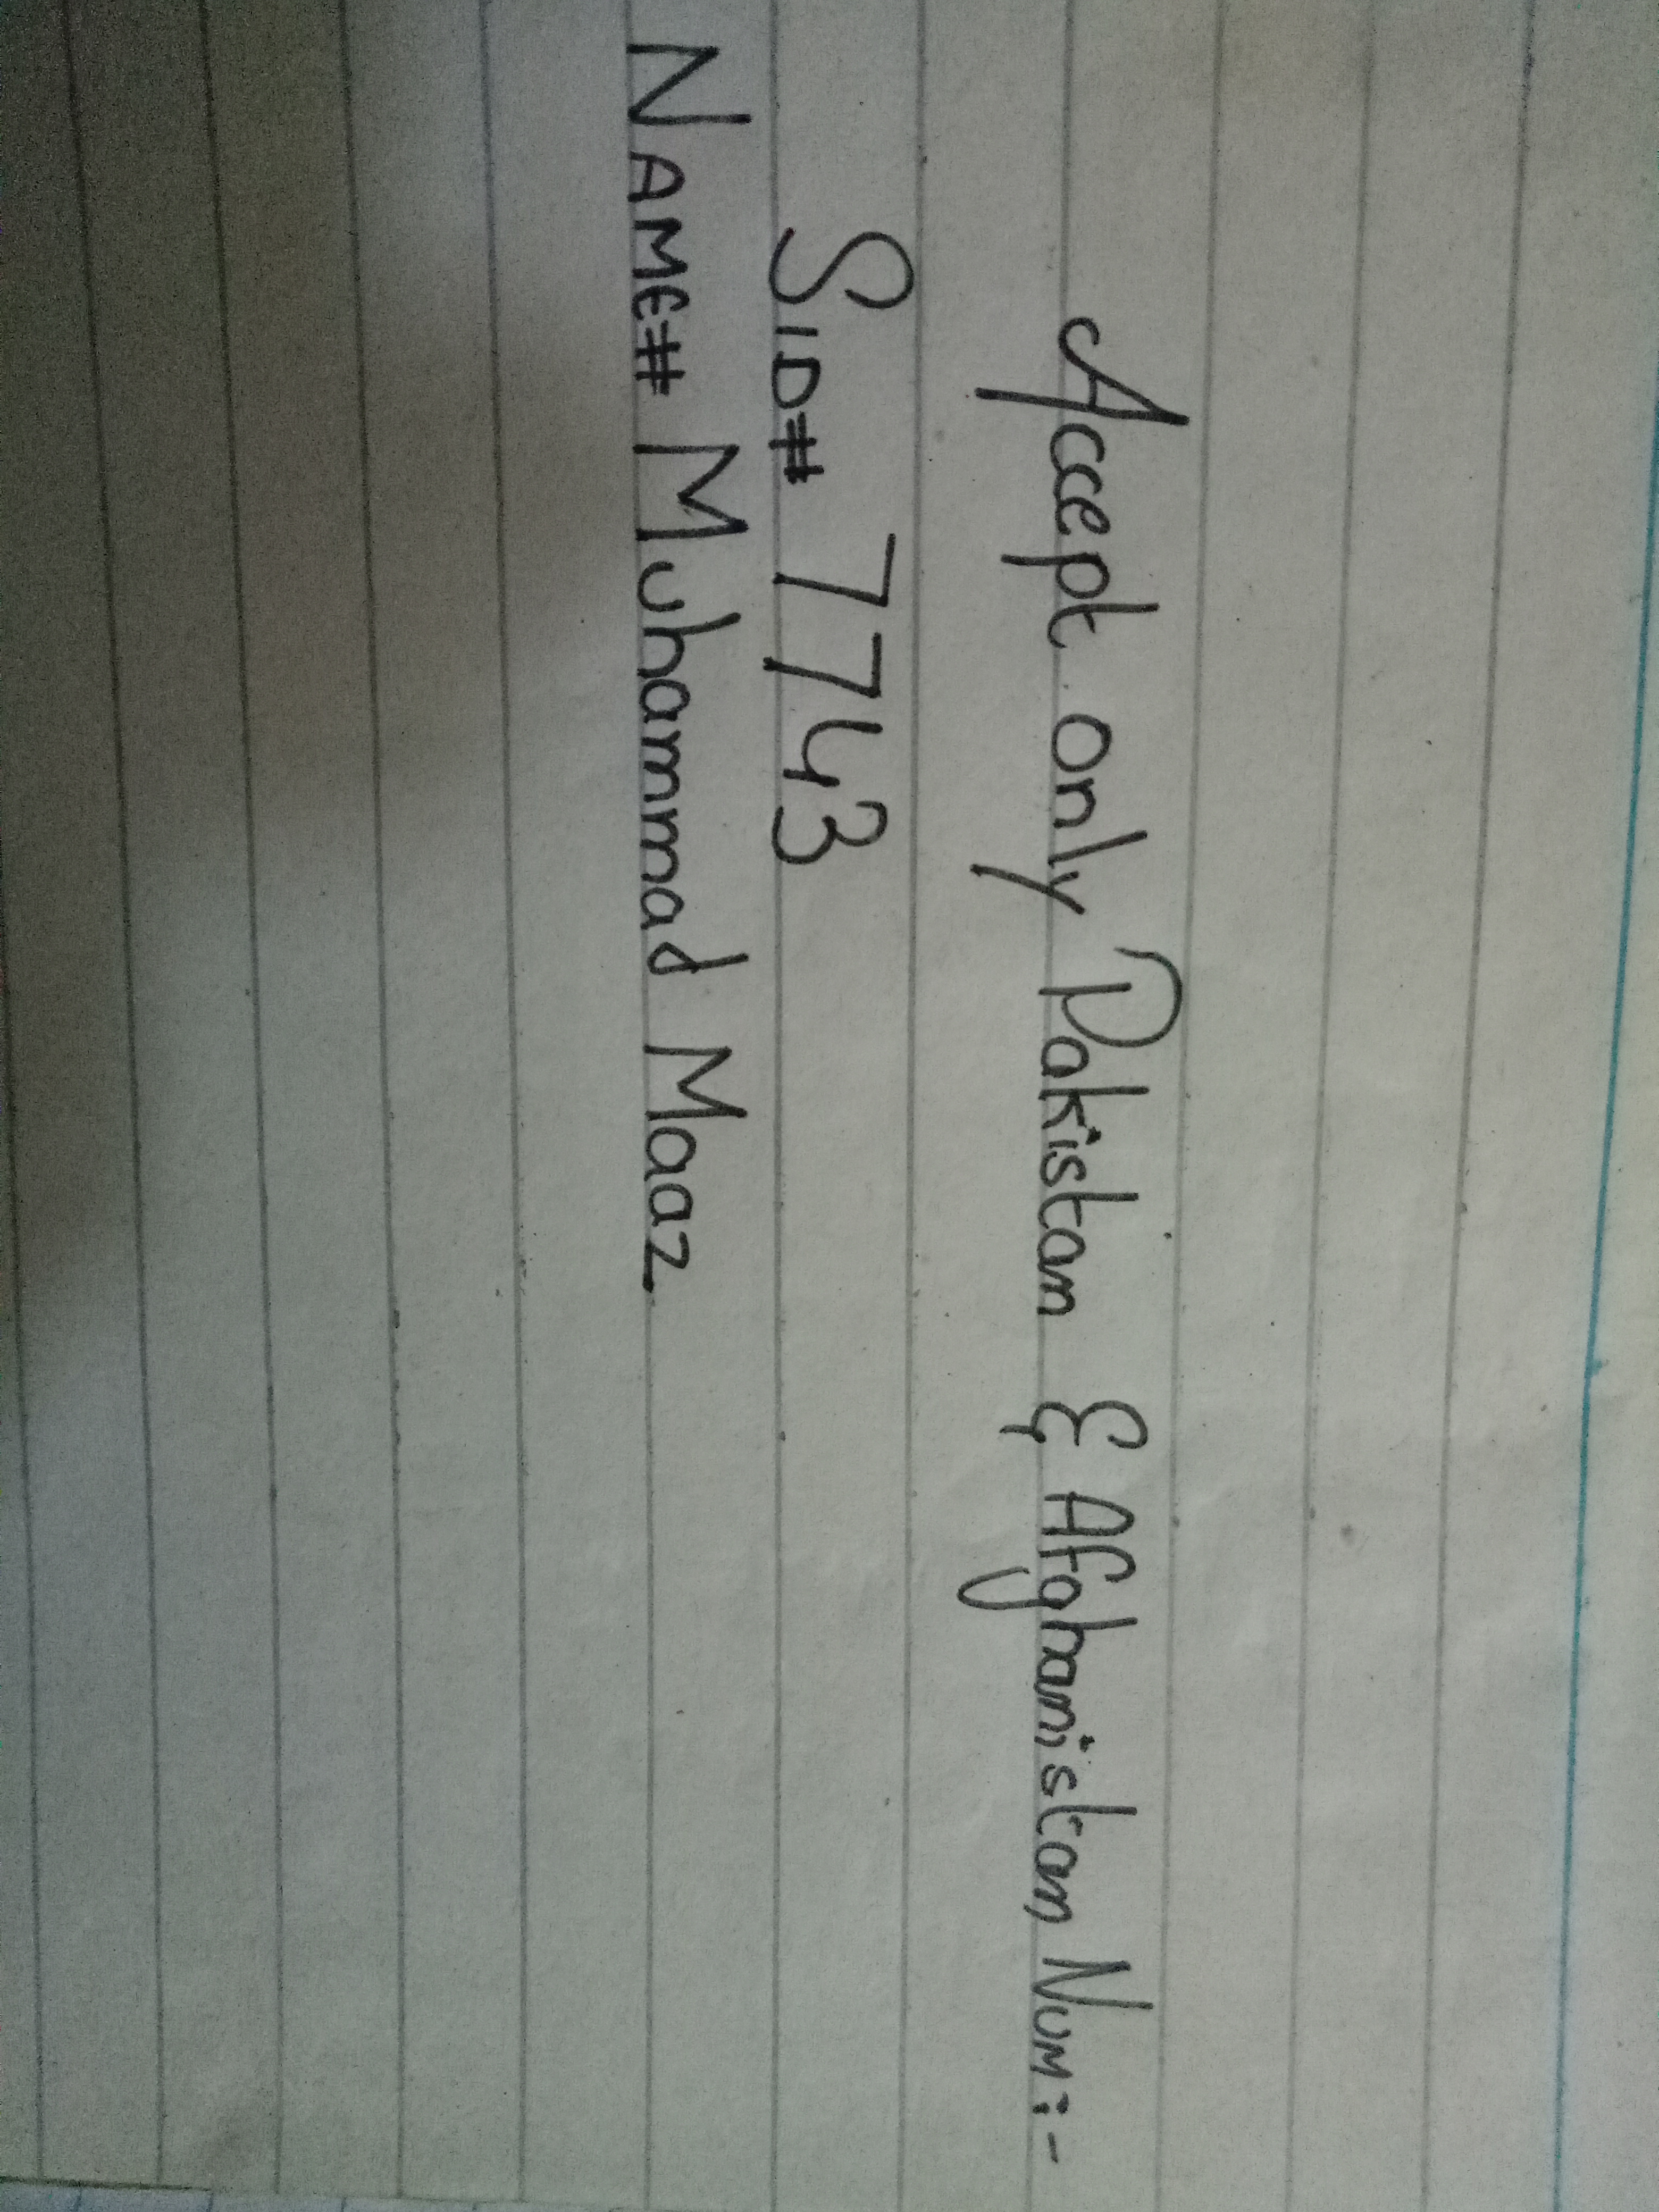 Accept only Pakistan & Afghanistan Num:-
SID# 7743
NAME# Muhammad Maaz